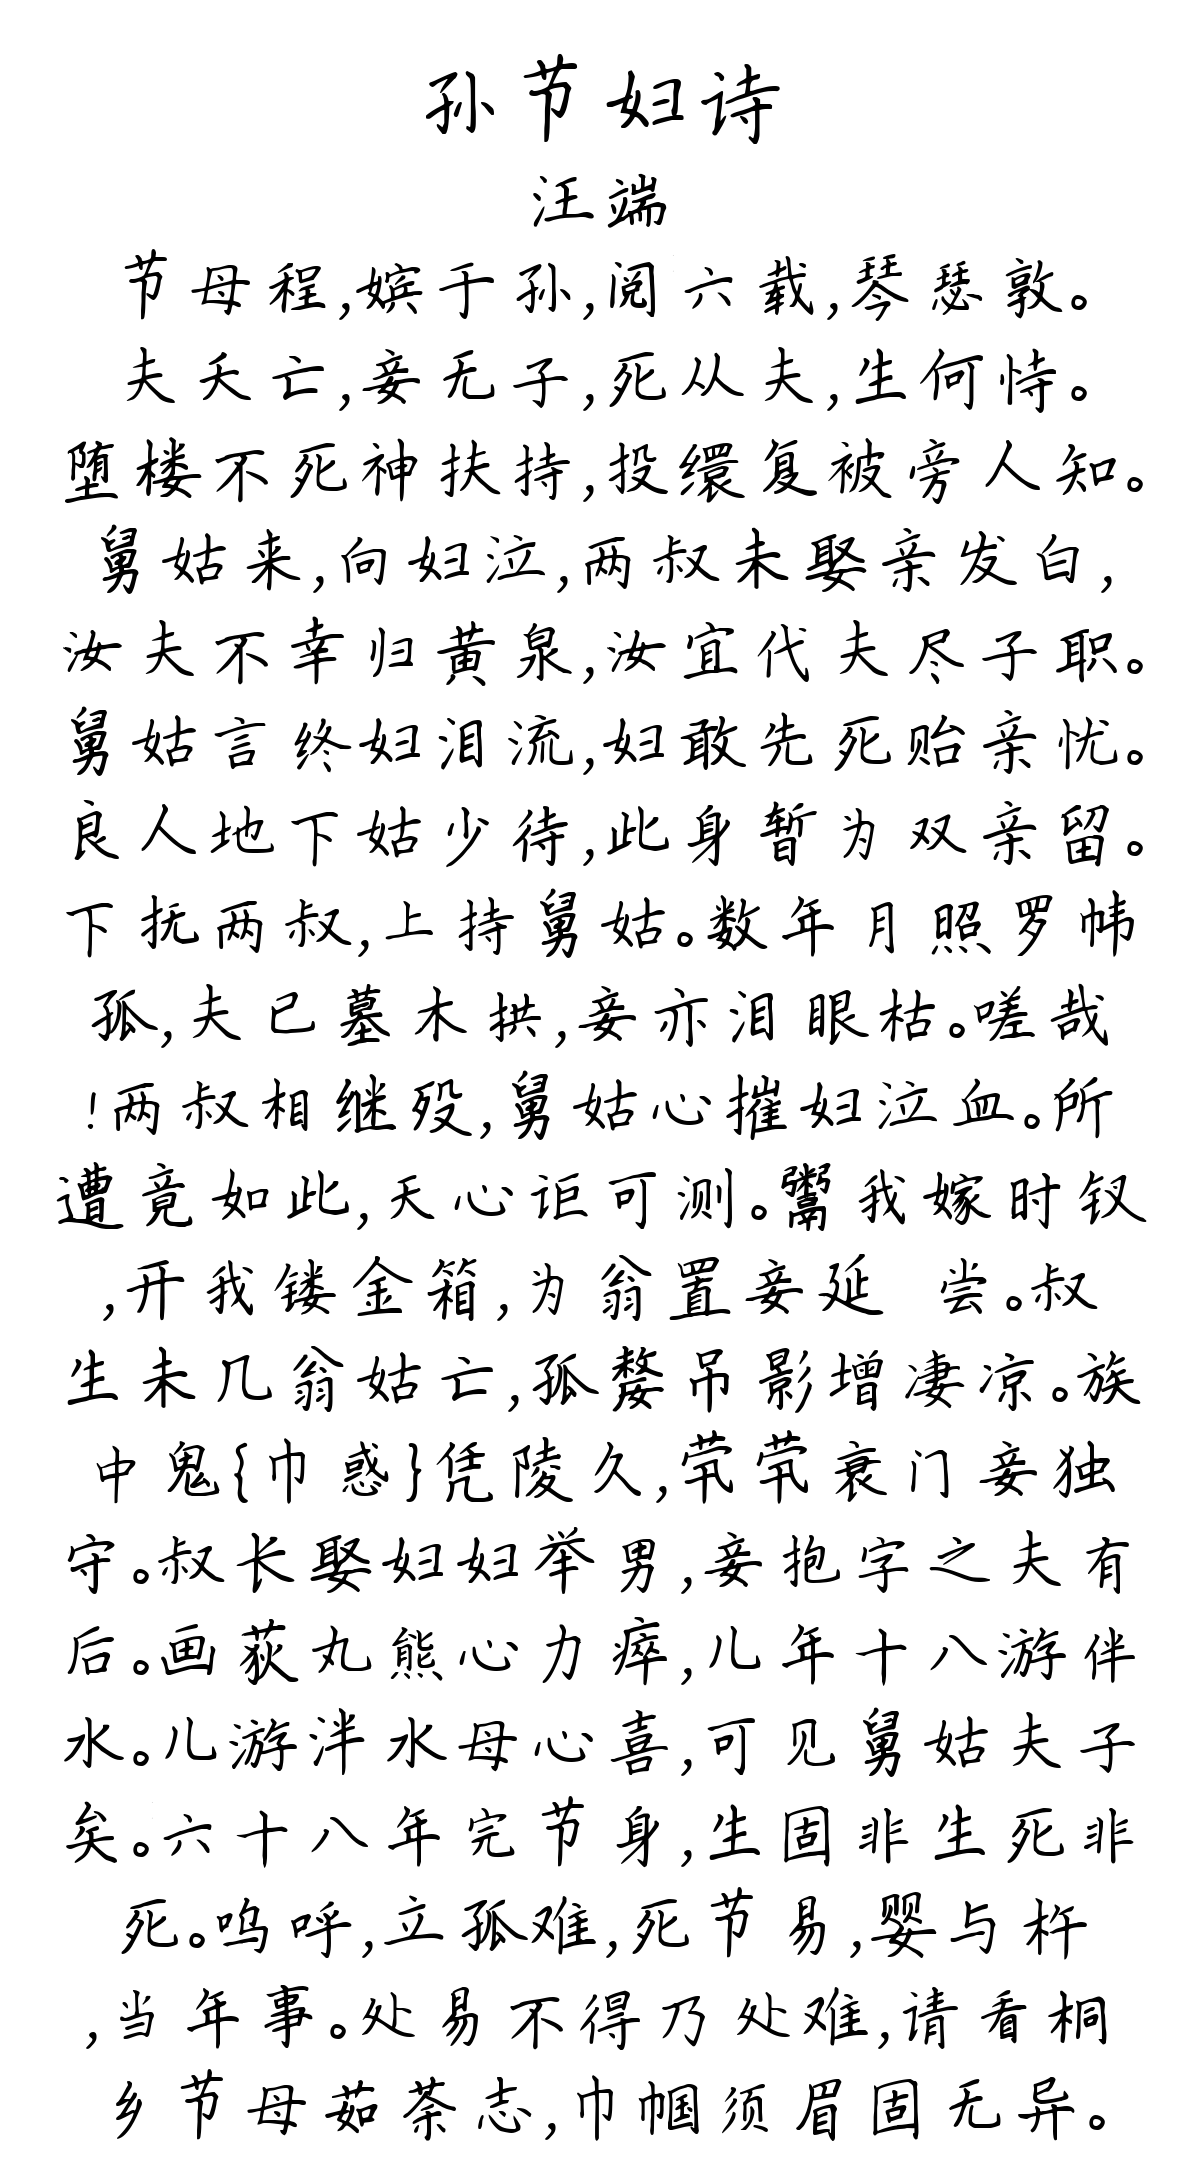 孙节妇诗
汪端
节母程,嫔于孙,阅六载,琴瑟敦。
夫夭亡,妾无子,死从夫,生何恃。
堕楼不死神扶持,投缳复被旁人知。
舅姑来,向妇泣,两叔未娶亲发白,
汝夫不幸归黄泉,汝宜代夫尽子职。
舅姑言终妇泪流,妇敢先死贻亲忧。
良人地下姑少待,此身暂为双亲留。
下抚两叔,上持舅姑。数年月照罗帏
孤,夫已墓木拱,妾亦泪眼枯。嗟哉
!两叔相继殁,舅姑心摧妇泣血。所
遭竟如此,天心讵可测。鬻我嫁时钗
,开我镂金箱,为翁置妾延 尝。叔
生未几翁姑亡,孤嫠吊影增凄凉。族
中鬼{巾惑}凭陵久,茕茕衰门妾独
守。叔长娶妇妇举男,妾抱字之夫有
后。画荻丸熊心力瘁,儿年十八游伴
水。儿游泮水母心喜,可见舅姑夫子
矣。六十八年完节身,生固非生死非
死。呜呼,立孤难,死节易,婴与杵
,当年事。处易不得乃处难,请看桐
乡节母茹荼志,巾帼须眉固无异。